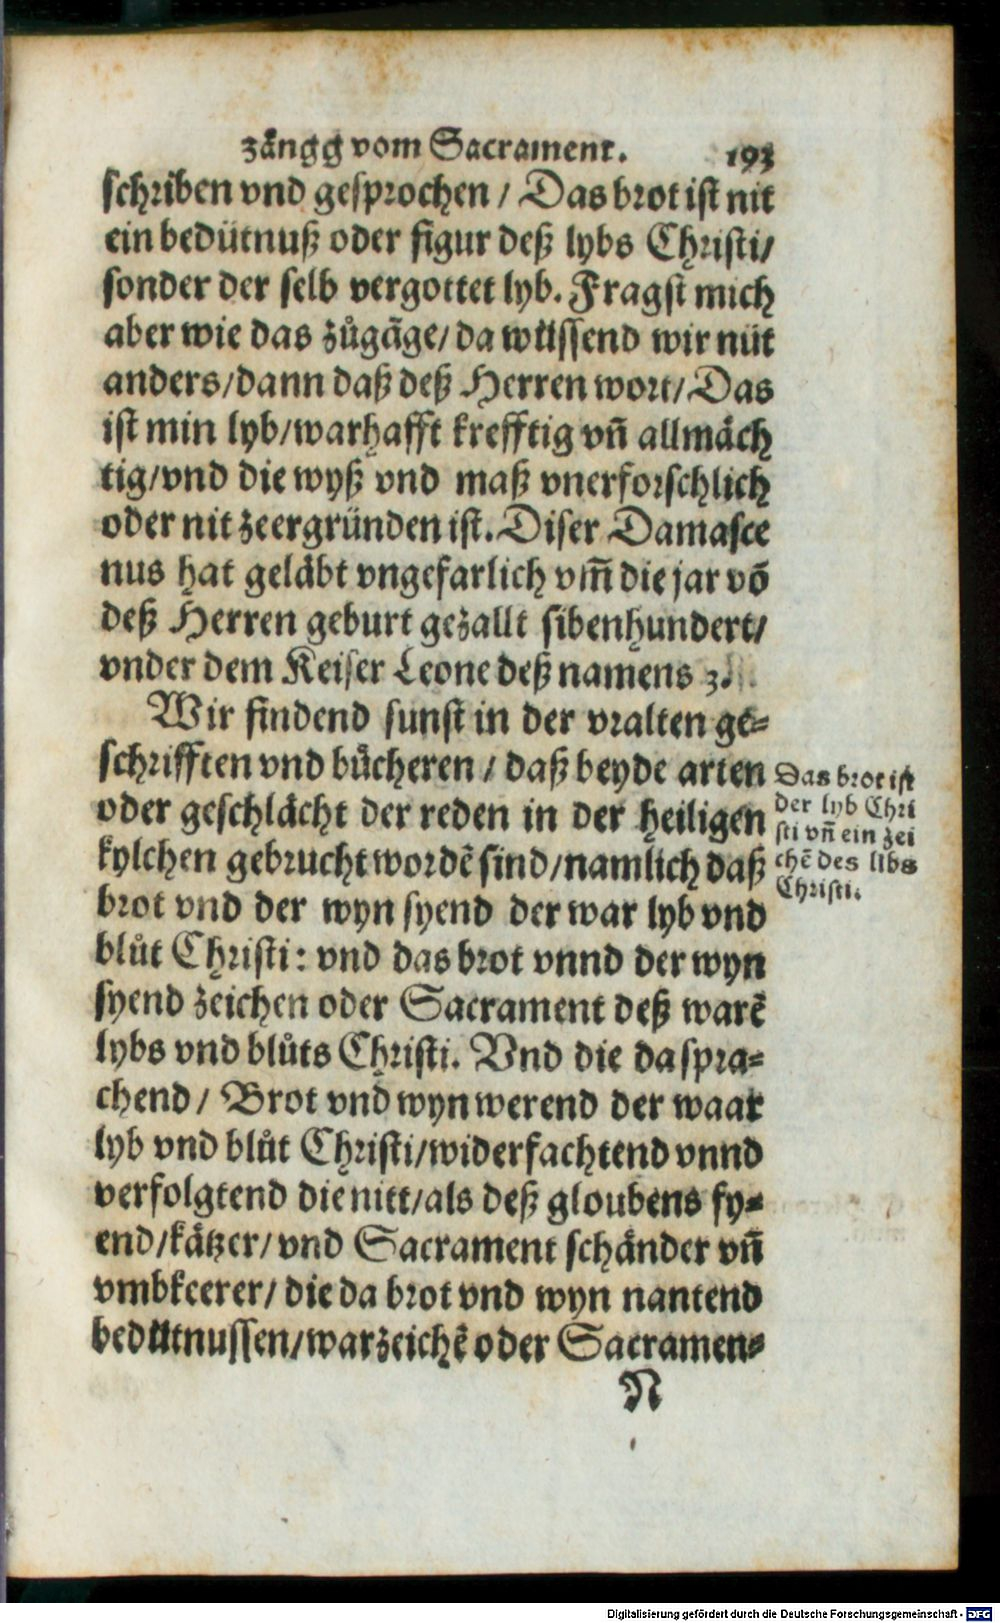 zångg vom Sacrament. 193
schriben vnd gesprochen / Das brot ist nit
ein bedütnuß oder figur deß lybs Christi/
sonder der selb vergottet lyb. Fragst mich
aber wie das zůgäge/ da wüssend wir nüt
anders/dann daß deß Herren wort/ Das
ist min lyb/warhafft krefftig vñ allmäch
tig/vnd die wyß vnd maß vnerforschlich
oder nit zeergründen ist. Diser Damasce
nus hat geläbt vngefarlich vm̃ die jar võ
deß Herren geburt gezallt sibenhundert/
vnder dem Keiser Leone deß namens 3.
Wir findend sunst in der vralten ge-
schrifften vnd bůcheren / daß beyde arten
oder geschlächt der reden in der heiligen
kylchen gebrucht wordẽ sind/namlich daß
brot vnd der wyn syend der war lyb vnd
blůt Christi: vnd das brot vnnd der wyn
syend zeichen oder Sacrament deß warẽ
lybs vnd blůts Christi. Vnd die da spra-
chend / Brot vnd wyn werend der waar
lyb vnd blůt Christi/widerfachtend vnnd
verfolgtend die nitt/als deß gloubens fy-
end/kätzer/ vnd Sacrament schänder vñ
vmbkeerer/ die da brot vnd wyn nantend
bedütnussen/warzeichẽ oder Sacramen-
N
Das brot ist
der lyb Chri
sti vñ ein zei
chẽ des libs
Christi.
Digitalisierung gefördert durch die Deutsche Forschungsgemeinschaft - DFG